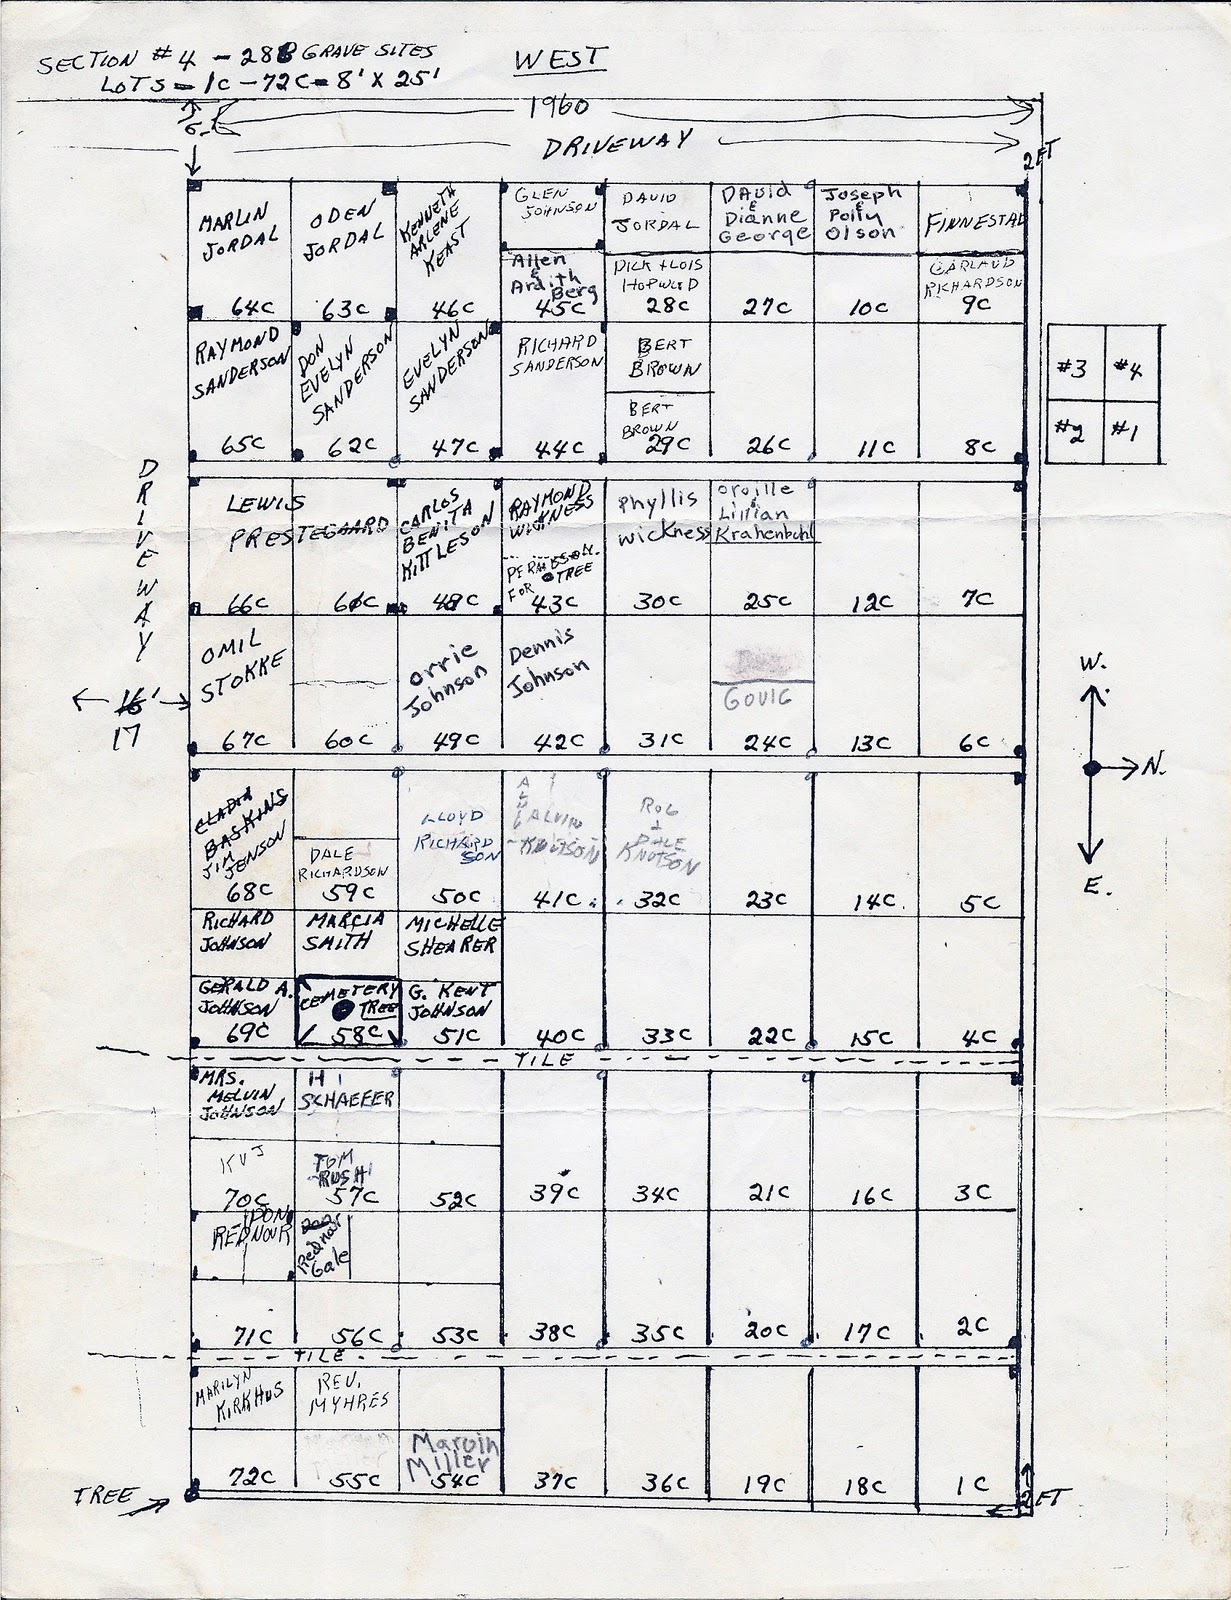 SECTION #4 - 288 GRAVE SITES
LOTS = 1C - 72C = 8' X 25'
WEST
1960
DRIVEWAY
2 FT
MARLIN
JORDAL
64C
ODEN
JORDAL
63C
KENNETH
ARLENE
KEAST
46C
GLEN
JOHNSON
Allen
&
Ardith
Berg
45C
DAVID
JORDAL
DICK + LOIS
HOPWOOD
28C
DAvid
&
Dianne
George
27C
Joseph
&
Polly
Olson
10C
FINNESTAD
GARLAND
RICHARDSON
9C
RAYMOND
SANDERSON
65C
DON
EVELYN
SANDERSON
62C
EVELYN
SANDERSON
47C
RICHARD
SANDERSON
44C
BERT
BROWN
BERT
BROWN
29C
26C
11C
8C
#3 #4
#2 #1
DRIVEWAY
LEWIS
PRESTEGAARD
66C
61C
CARLOS
BENITA
KITTLESON
48C
RAYMOND
WICKNESS
FOR TREE
43C
Phyllis
wickness
30C
orville
&
Lillian
Krahenbuhl
25C
12C
7C
OMIL
STOKKE
67C
60C
Orrie
Johnson
49C
Dennis
Johnson
42C
31C
GOVIG
24C
13C
6C
16'
17
W.
N.
E.
BASKINS
JIM
JENSON
68C
DALE
RICHARDSON
59C
LLOYD
RICHARD
SON
50C
ALVIN
KNUTSON
41C
ROG
&
DALE
KNUTSON
32C
23C
14C
5C
RICHARD
JOHNSON
GERALD A.
JOHNSON
69C
MARCIA
SMITH
CEMETERY
TREE
58C
MICHELLE
SHEARER
G. KENT
JOHNSON
51C
40C
33C
22C
15C
4C
TILE
MRS.
MELVIN
JOHNSON
KVJ
70C
H
SCHAEFER
TOM
RUSH
57C
52C
39C
34C
21C
16C
3C
DON
REDNOUR
71C
Rednour
Gale
56C
53C
38C
35C
20C
17C
2C
TILE
MARILYN
KIRKHUS
72C
REV.
MYHRES
55C
Marvin
Miller
54C
37C
36C
19C
18C
1C
TREE
2 FT